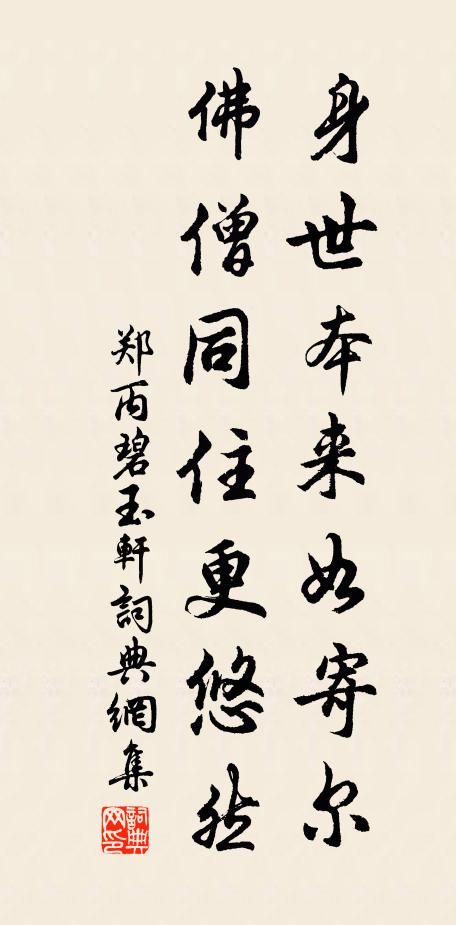 身世本来如寄尔
佛僧同住更悠然
郑丙碧玉軒詞典網集
詞典网印